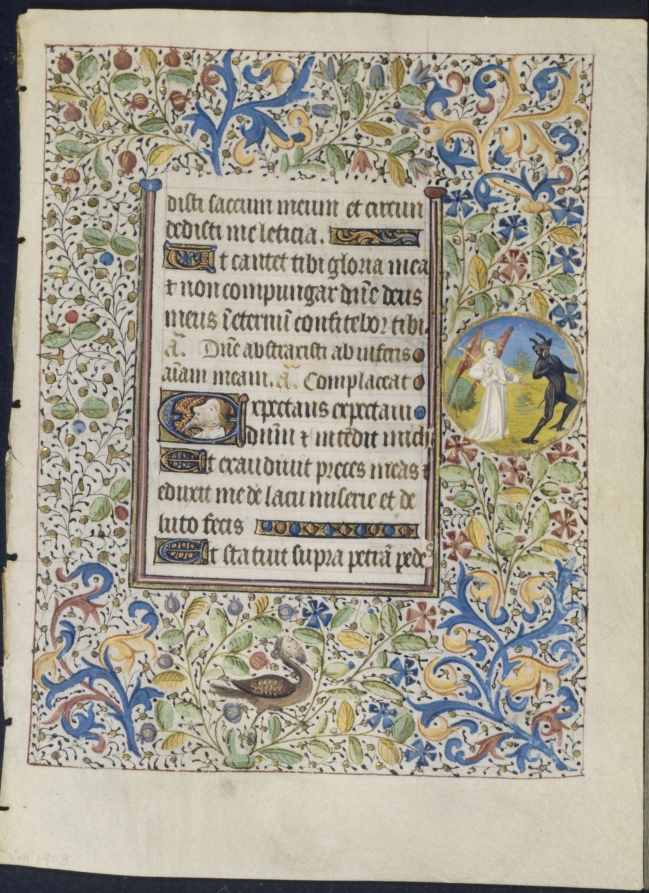 disti saccum meum et circun
dedisti me leticia.
Ut cantet tibi gloria mea
⁊ non compungar dn̄e deus
meus ī eternū confitebor tibi.
a. Dn̄e abstraxisti ab inferis
aīam meam. a. Complaceat
Expectans expectaui
dominū ⁊ intēdit michi
Et exaudiuit preces meas ⁊
eduxit me de lacu miserie et de
luto fecis
Et statuit supra petrā pedes